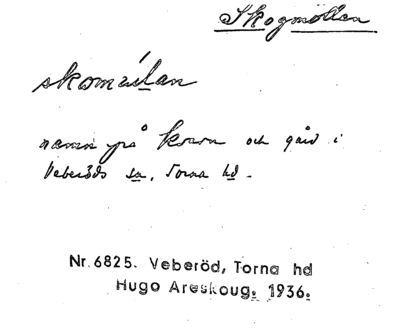 Skogmöllan
skomúlan
namn på kvarn och gård i
Veberöds sn, Torna hd.
Nr. 6825. Veberöd, Torna hd
Hugo Areskoug. 1936.